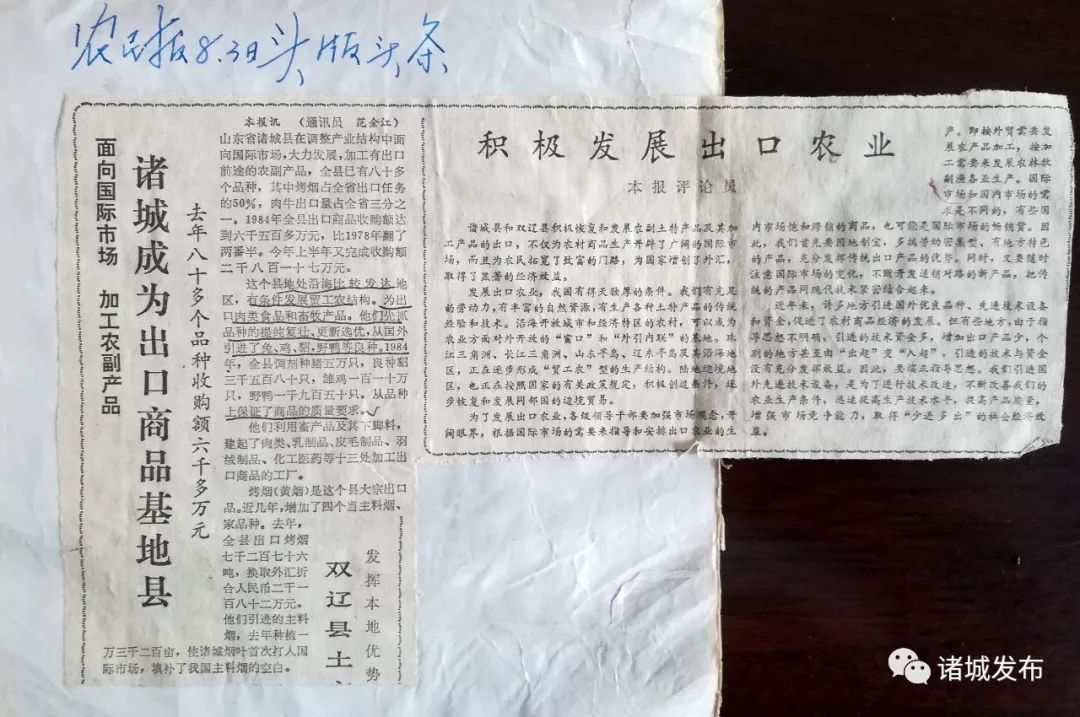 农民报8.3日头版头条
面向国际市场 加工农副产品
诸城成为出口商品基地县
去年八十多个品种收购额六千多万元
本报讯 （通讯员 范金江）
山东省诸城县在调整产业结构中面
向国际市场，大力发展，加工有出口
前途的农副产品，全县已有八十多
个品种，其中烤烟占全省出口任务
的50%，肉牛出口量占全省三分之
一。1984年全县出口商品收购额达
到六千五百多万元，比1978年翻了
两番半。今年上半年又完成收购额
二千八百一十七万元。
这个县地处沿海比较发达地
区，有条件发展贸工农结构。为出
口肉类食品和畜牧产品。他们先抓
品种的提纯复壮、更新选优，从国外
引进了兔、鸡、貂、野鸭等良种。1984
年，全县调剂种猪五万只，良种貂
三千五百八十只，雏鸡一百一十万
只，野鸭一千九百五十只。从品种
上保证了商品的质量要求。
他们利用畜产品及其下脚料，
建起了肉类、乳制品、皮毛制品、羽
绒制品、化工医药等十三处加工出
口商品的工厂。
烤烟(黄烟)是这个县大宗出口
品。近几年，增加了四个当主料烟、
家品种。去年，
全县出口烤烟
七千二百七十六
吨，换取外汇折
合人民币二千一
百八十二万元。
他们引进的主料
烟，去年种植一
万三千二百亩，使诸城烟叶首次打入国
际市场，填补了我国主料烟的空白。
发挥本地优势
双辽县土
积极发展出口农业
本报评论员
诸城县和双辽县积极恢复和发展农副土特产品及其加
工产品的出口，不仅为农村商品生产开辟了广阔的国际市
场，而且为农民拓宽了致富的门路，为国家增创了外汇，
取得了显著的经济效益。
发展出口农业，我国有得天独厚的条件。我们有充足
的劳动力，有丰富的自然资源，有生产各种土特产品的传统
经验和技术。沿海开放城市和经济特区的农村，可以成为
农业方面对外开放的“窗口”和“外引内联”的基地。珠
江三角洲、长江三角洲、山东半岛、辽东半岛及其沿海地
区，正在逐步形成“贸工农”型的生产结构。陆地边境地
区，也正在按照国家的有关政策规定，积极创造条件，逐
步恢复和发展同邻国的边境贸易。
为了发展出口农业，各级领导干部要加强市场观念，开
阔眼界，根据国际市场的需要来指导和安排出口农业的生
产。即按外贸需要发
展农产品加工，按加
工需要来发展农林牧
副渔各业生产。国际
市场和国内市场的需
求是不同的，有些国
内市场饱和滞销的商品，也可能是国际市场的畅销货。因
此，我们首先要因地制宜，多搞劳动密集型、有地方特色
的产品，充分发挥传统出口产品的优势。同时，又要随时
注意国际市场的变化，不断开发适销对路的新产品，把传
统的产品同现代技术紧密结合起来。
近年来，许多地方引进国外优良品种、先进技术设备
和资金，促进了农村商品经济的发展。但有些地方，由于指
导思想不明确，引进的技术资金多，增加出口产品少，个
别的地方甚至由“出超”变“入超”，引进的技术与资金
没有充分发挥效益。因此，要端正指导思想。我们引进国
外先进技术设备，是为了进行技术改造，不断改善我们的
农业生产条件，迅速提高生产技术水平，提高产品质量，
增强市场竞争能力，取得“少进多出”的社会经济效
益。
诸城发布